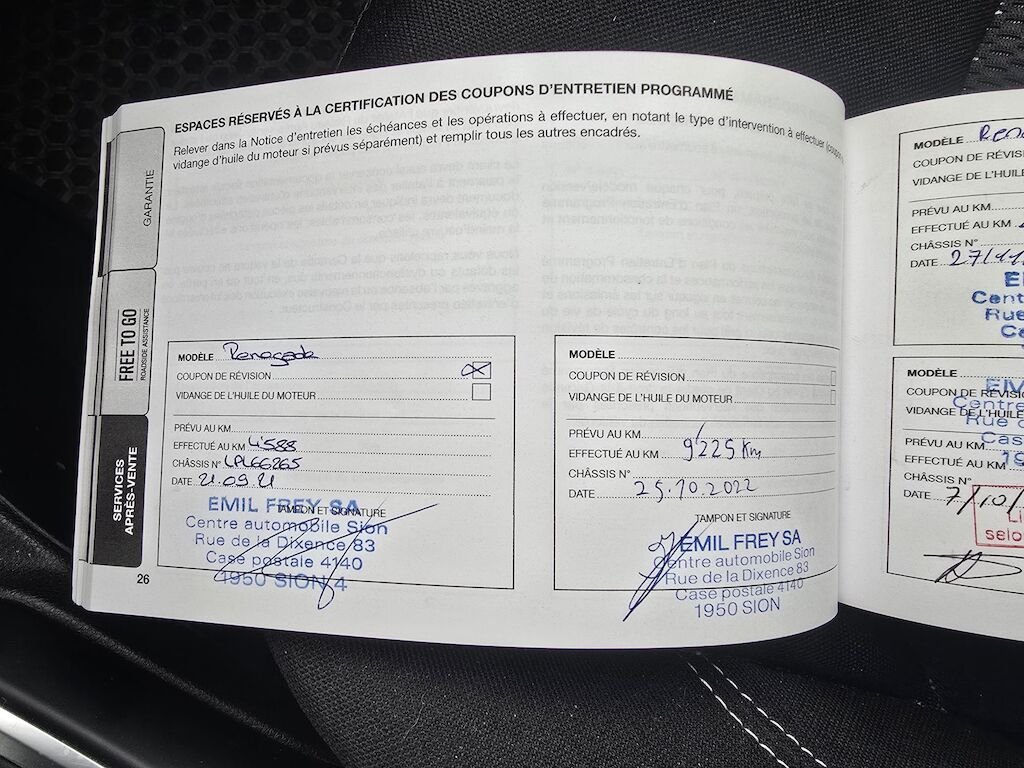 ESPACES RÉSERVÉS À LA CERTIFICATION DES COUPONS D'ENTRETIEN PROGRAMMÉ
Relever dans la Notice d'entretien les échéances et les opérations à effectuer, en notant le type d'intervention à effectuer
vidange d'huile du moteur si prévus séparément) et remplir tous les autres encadrés.
GARANTIE
FREE TO GO
ROADSIDE ASSISTANCE
SERVICES
APRÈS-VENTE
26
MODÈLE Renegade
COUPON DE RÉVISION X
VIDANGE DE L'HUILE DU MOTEUR
PRÉVU AU KM
EFFECTUÉ AU KM 4'588
CHÂSSIS N° LPL66265
DATE 21.09.21
TAMPON ET SIGNATURE
EMIL FREY SA
Centre automobile Sion
Rue de la Dixence 83
Case postale 4140
1950 SION 4
MODÈLE
COUPON DE RÉVISION
VIDANGE DE L'HUILE DU MOTEUR
PRÉVU AU KM
EFFECTUÉ AU KM 9'225 Km
CHÂSSIS N°
DATE 25.10.2022
TAMPON ET SIGNATURE
EMIL FREY SA
Centre automobile Sion
Rue de la Dixence 83
Case postale 4140
1950 SION
MODÈLE
COUPON DE RÉVISI
VIDANGE DE L'HUIL
PRÉVU AU KM
EFFECTUÉ AU KM
CHÂSSIS N°
DATE 27/11
E
Cent
Rue
Ca
MODÈLE
COUPON DE RÉVISION
VIDANGE DE L'HUILE
EMI
Centre
Rue d
Cas
19
PRÉVU AU KM
EFFECTUÉ AU KM
CHÂSSIS N°
DATE 7/10/
selo